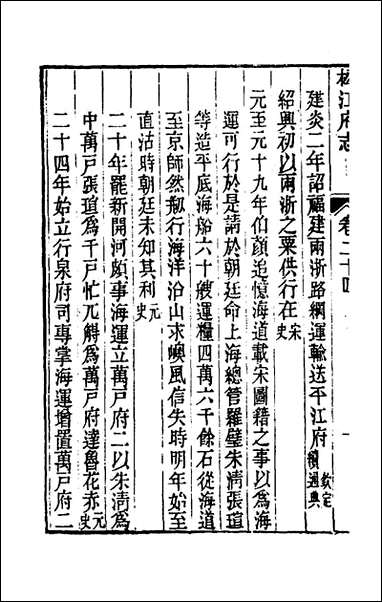 松江府志 卷二十四 一
建炎二年詔福建兩浙路綱運輸送平江府 欽定續通典
紹興初以兩浙之粟供行在 宋史
元至元十九年伯顏追憶海道載宋圖籍之事以爲海
運可行於是請於朝廷命上海總管羅璧朱淸張瑄
等造平底海船六十艘運糧四萬六千餘石從海道
至京師然剏行海洋沿山求嶼風信失時明年始至
直沽時朝廷未知其利 元史
二十年罷新開河頗事海運立萬戸府二以朱淸爲
中萬戸張瑄爲千戸忙兀䚟爲萬戸府達魯花赤 元史
二十四年始立行泉府司專掌海運增置萬戸府二